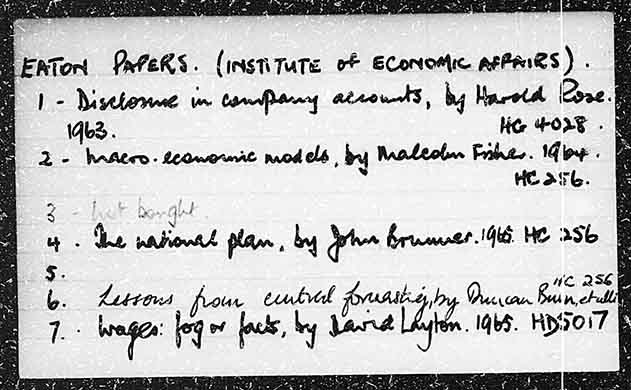 EATON PAPERS. (INSTITUTE OF ECONOMIC AFFAIRS).
1 - Disclosure in company accounts, by Harold Rose.
1963. HG 4028.
2 - Macro-economic models, by Malcolm Fisher. 1964.
HC 256.
3 - not bought.
4. The national plan, by John Brunner. 1965. HC 256
5.
HC 256
6. Lessons from central forecasting, by Duncan Burn, et alii
7. Wages: fog or facts, by David Layton. 1965. HD5017